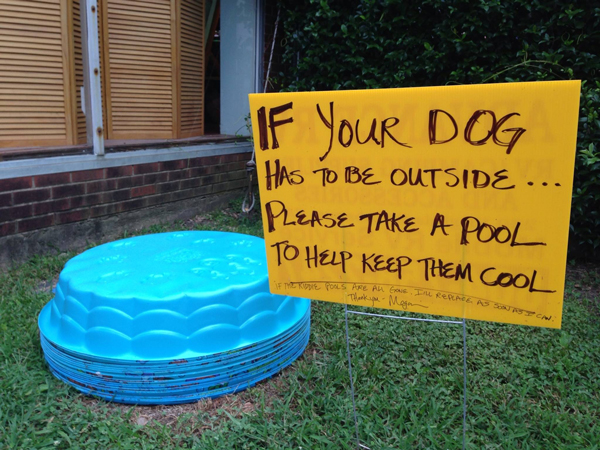 IF YOUR DOG
HAS TO BE OUTSIDE ...
PLEASE TAKE A POOL
TO HELP KEEP THEM COOL
IF THE KIDDIE POOLS ARE ALL GONE I'LL REPLACE AS SOON AS I CAN.
Thank you -